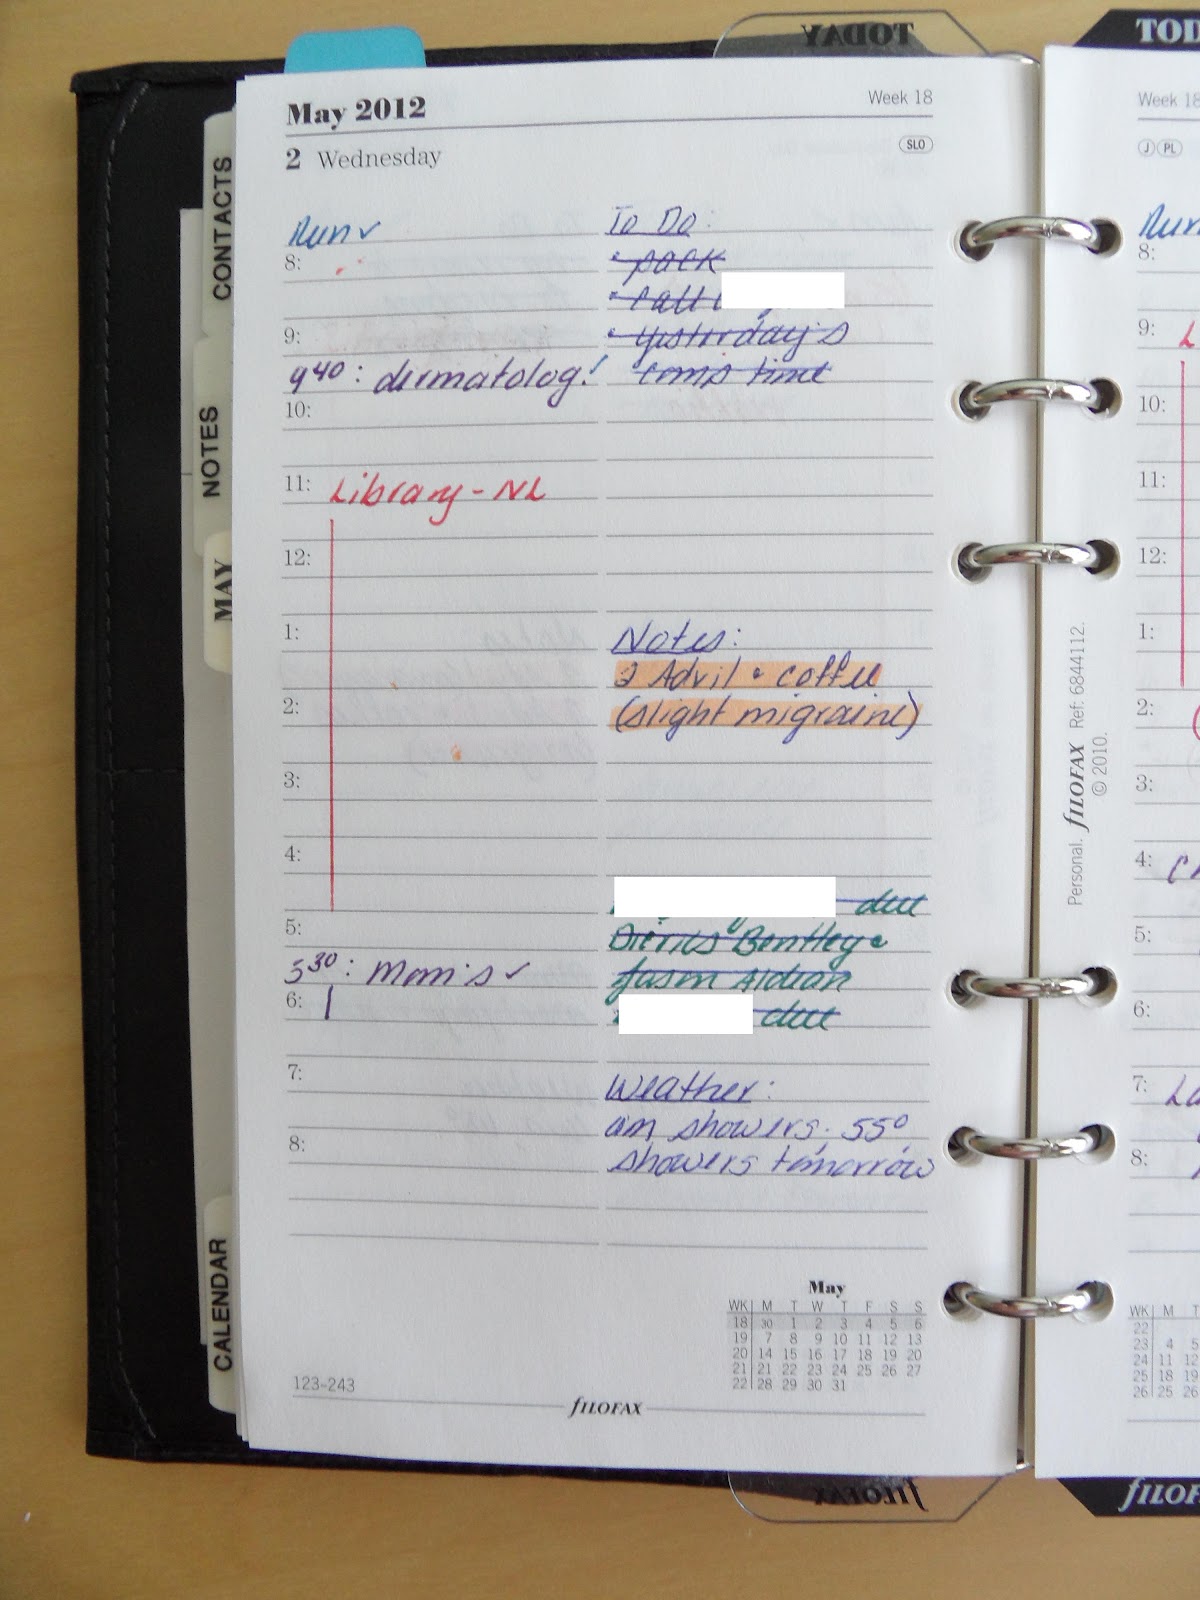 TODAY
TOD
May 2012
Week 18
2 Wednesday
SLO
Run ✓
8:
9:
9:40: dermatolog!
10:
11:
Library - NL
12:
1:
2:
3:
4:
5:
5:30: Mom's ✓
6:
7:
8:
To Do:
• pack
• call
• yesterday's
comp time
Notes:
2 Advil & coffee
(slight migraine)
due
Dierks Bentley &
Jason Aldean
due
Weather:
am showers. 55°
showers tomorrow
May
WK M T W T F S S
18 30 1 2 3 4 5 6
19 7 8 9 10 11 12 13
20 14 15 16 17 18 19 20
21 21 22 23 24 25 26 27
22 28 29 30 31
123-243
fILOFAX
CONTACTS
NOTES
MAY
CALENDAR
Personal. fILOFAX Ref: 6844112.
© 2010.
Week 18
J PL
Run
8:
9:
10:
11:
12:
1:
2:
3:
4:
5:
6:
7:
8:
WK M T
22
23 4 5
24 11 12
25 18 19
26 25 26
fILOFAX